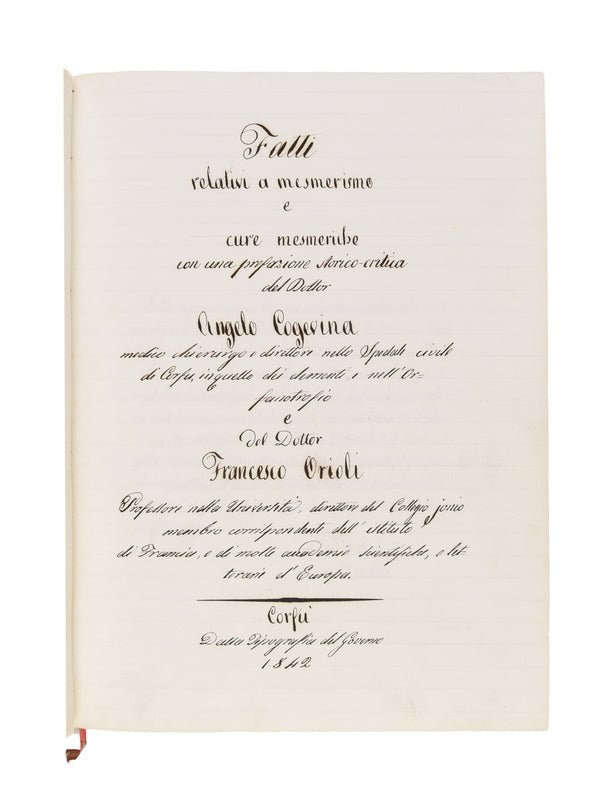 Fatti
relativi a mesmerismo
e
cure mesmeriche
con una prefazione storico-critica
del Dottor
Angelo Cogevina
medico chirurgo e direttore nello Spedale civile
di Corfù, in quello dei dementi, e nell'Or-
fanotrofio
e
Del Dottor
Francesco Orioli
Professore nella Università, direttore del Collegio jonio
membro corrispondente dell'istituto
di Francia, e di molte accademie scientifiche, e let-
terarie d'Europa.
Corfù
Dalla Tipografia del Governo
1842